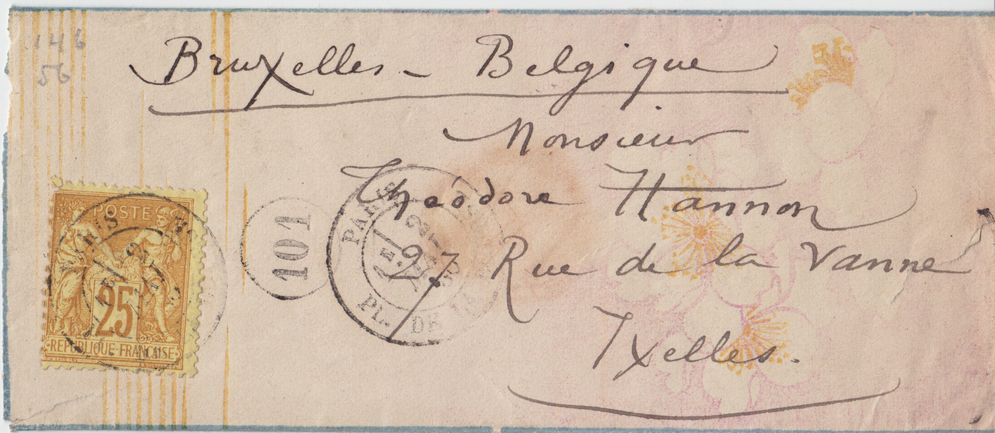 146
56
Bruxelles - Belgique
Monsieur
Théodore Hannon
97 Rue de la Vanne
Ixelles.
POSTE
25
REPUBLIQUE FRANÇAISE
101
PARIS
PL. DE LA